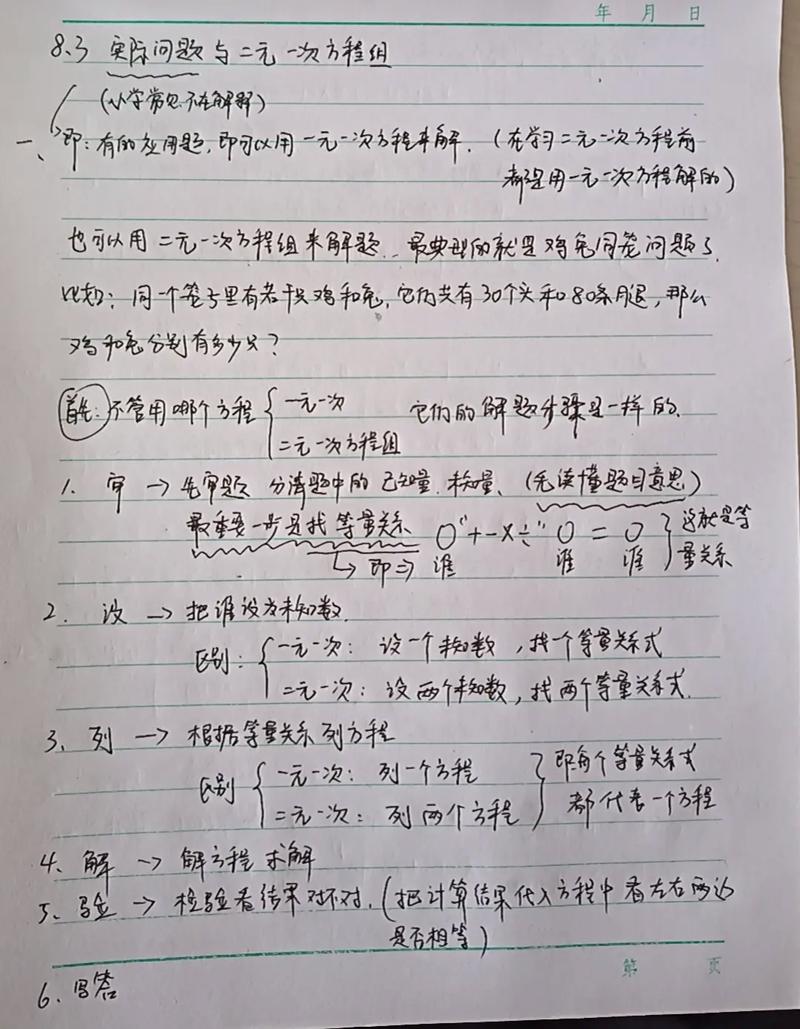 年 月 日
8.3 实际问题与二元一次方程组
(小学常见不在解释)
一、即:有的应用题,即可以用一元一次方程来解.(在学习二元一次方程前
都是用一元一次方程解的)
也可以用二元一次方程组来解题.. 最典型的就是鸡兔同笼问题了.
比如:同一个笼子里有若干只鸡和兔,它们共有30个头和80条腿,那么
鸡和兔分别有多少只?
首先:不管用哪个方程{一元一次 它们的解题步骤是一样的.
二元一次方程组
1. 审 → 先审题 分清题中的已知量.未知量、(先读懂题目意思)
最重要一步是找等量关系 O"+-×÷"O = O }这就是等
↳即⇒ 谁 谁 谁 量关系
2. 设 → 把谁设为未知数.
区别:{一元一次:设一个未知数,找一个等量关系式
二元一次:设两个未知数,找两个等量关系式.
3、列 → 根据等量关系列方程
区别{一元一次:列一个方程 }即每个等量关系式
二元一次:列两个方程 都代表一个方程
4、解 → 解方程求解
5、验 → 检验看结果对不对.(把计算结果代入方程中看左右两边
是否相等)
第 页
6.写答